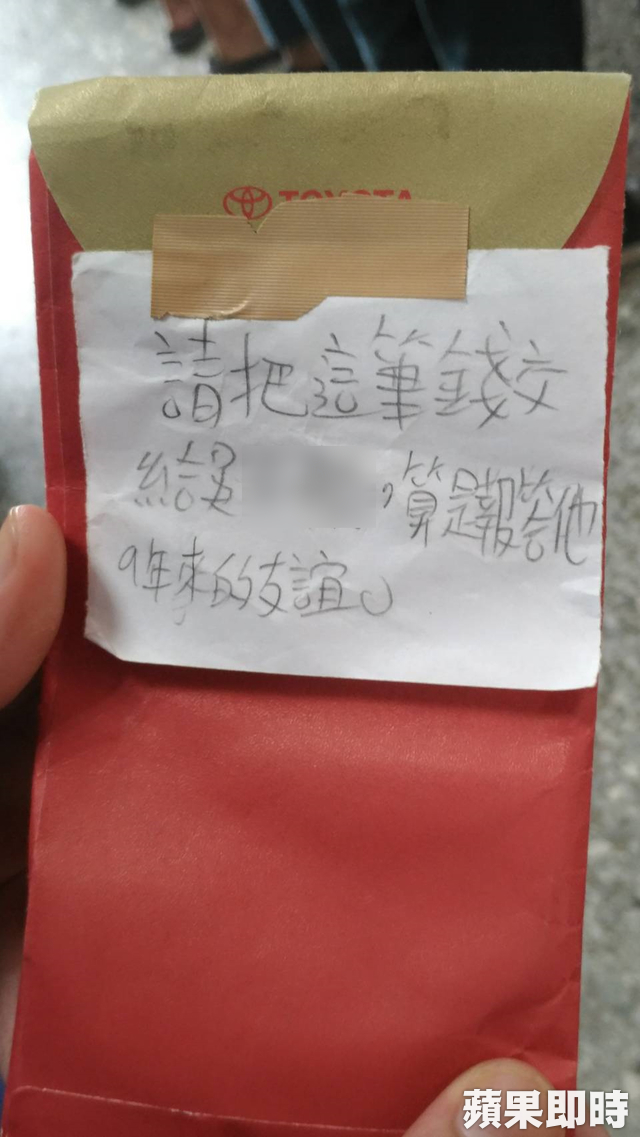 TOYOTA
請把這筆錢交
給吳，算是報答他
9年來的友誼。
蘋果即時